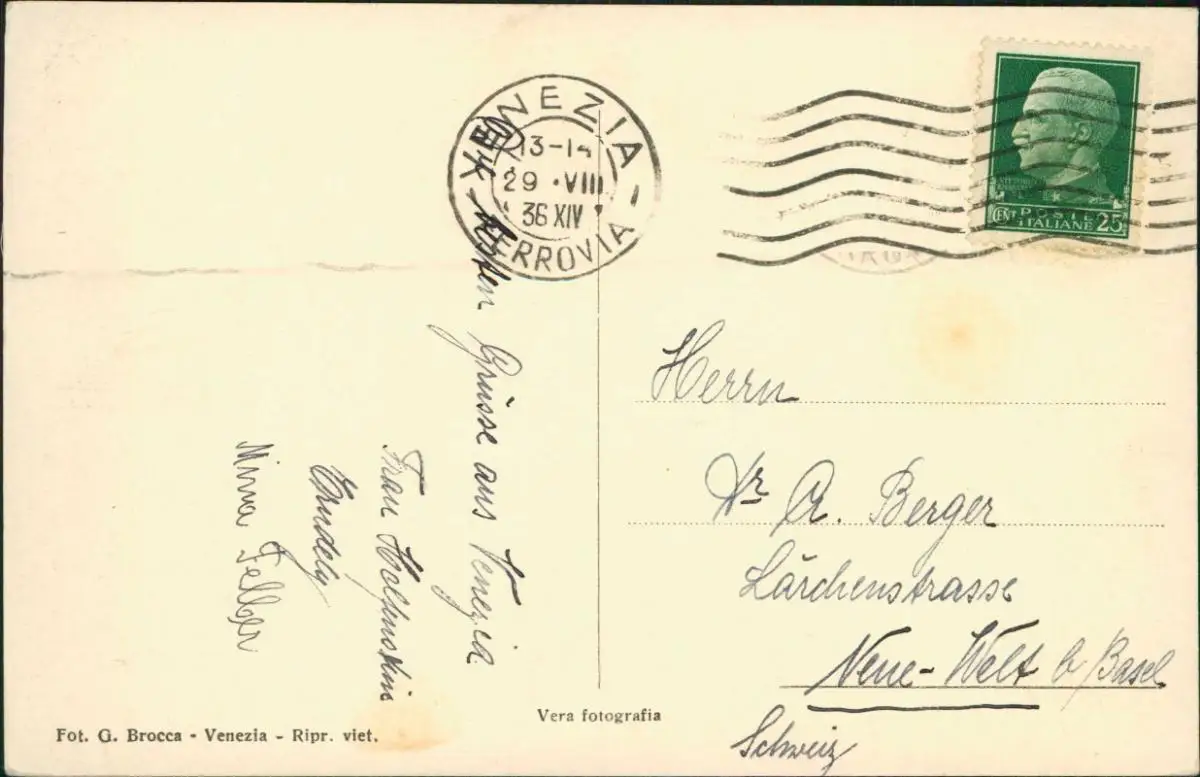 VENEZIA
13-14
29 · VIII
36 XIV
FERROVIA
POSTE
ITALIANE
CENT 25
Grüsse aus Venezia
Frau
Mina Felber
Herrn
Dr A. Berger
Lärchenstrasse
Neue-Welt b/Basel
Schweiz
Vera fotografia
Fot. G. Brocca - Venezia - Ripr. viet.